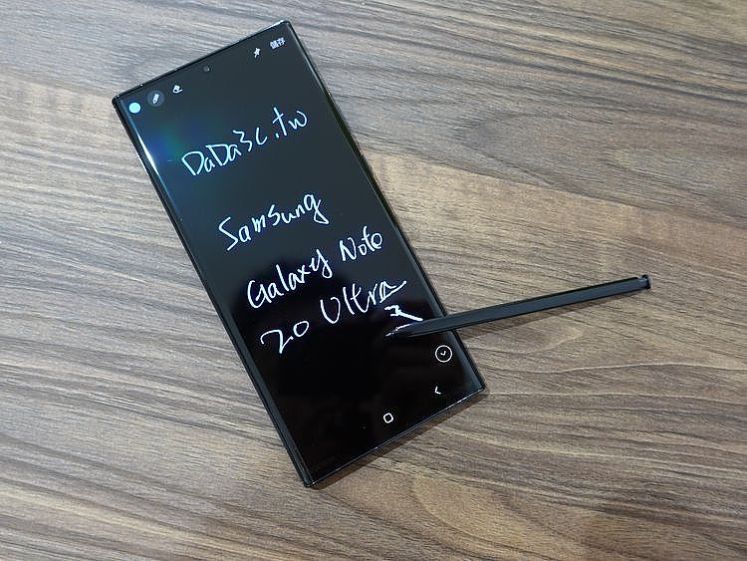 儲存
DaDa3c.tw
Samsung
Galaxy Note
20 Ultra